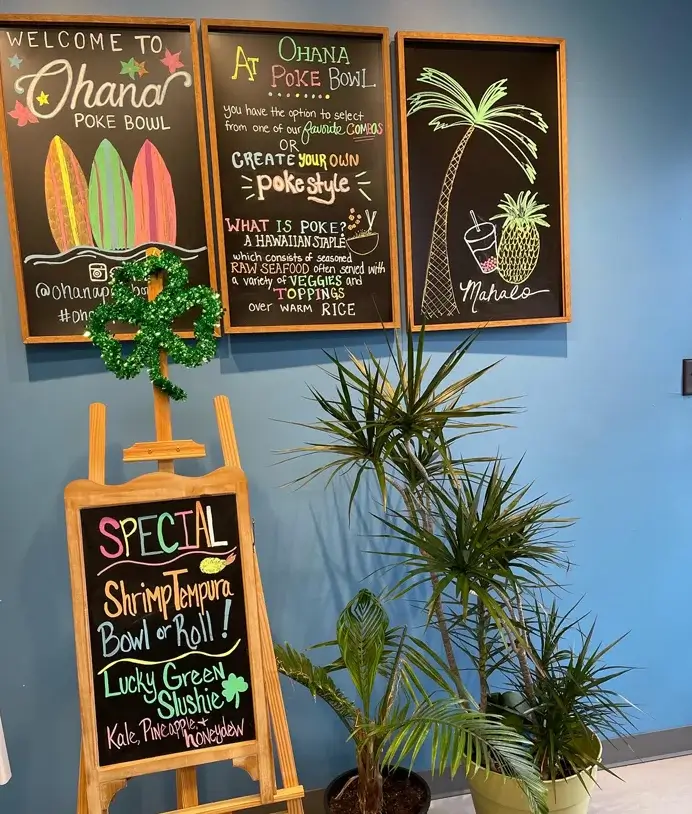 WELCOME TO
Ohana
POKE BOWL
#
AT OHANA
POKE BOWL
you have the option to select
from one of our favorite COMBOS
OR
CREATE YOUR OWN
poke style
WHAT IS POKE?
A HAWAIIAN STAPLE
which consists of seasoned
RAW SEAFOOD often served with
a variety of VEGGIES and
TOPPINGS
over WARM RICE
Mahalo
SPECIAL
Shrimp Tempura
Bowl or Roll!
Lucky Green
Slushie
Kale, Pineapple, + honeydew